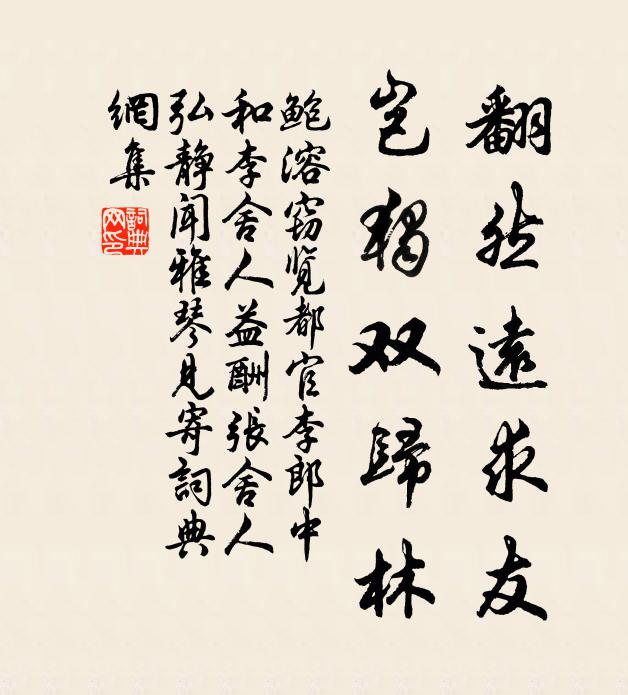 翻然遠求友
岂獨双歸林
鲍溶窃览都官李郎中
和李舍人益酬張舍人
弘静闻雅琴見寄詞典
網集
詞典
网印